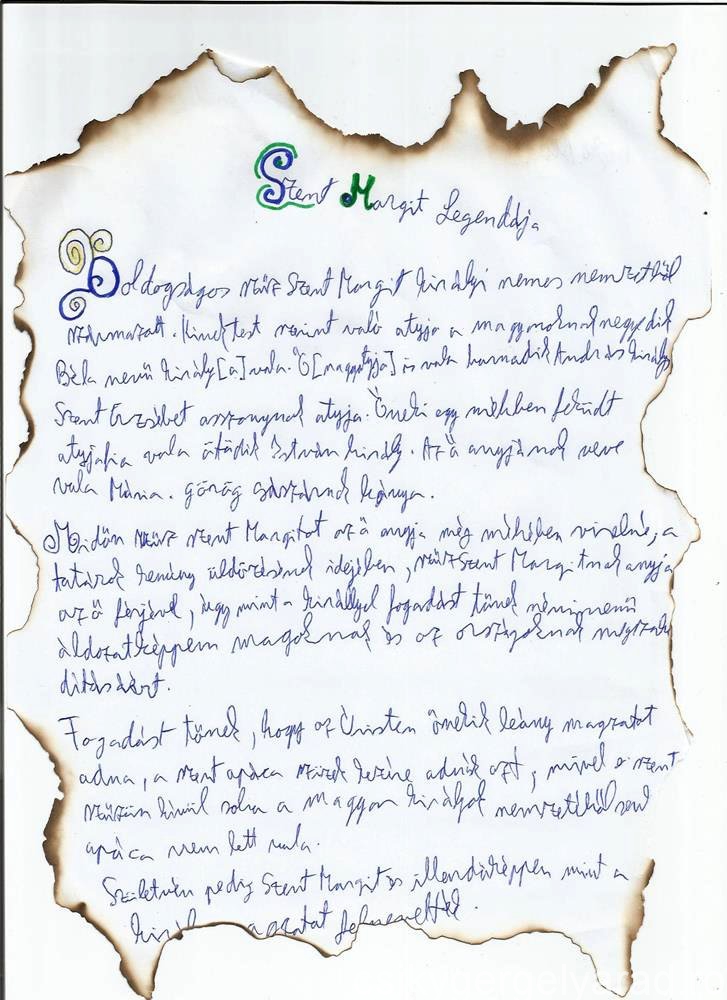 Szent Margit Legendája
Boldogságos szűz Szent Margit királyi nemes nemzetből
származott. Kinek test szerint való atyja a magyaroknak negyedik
Béla nevű király[a] vala. Ő [nagyatyja] is vala harmadik András király
Szent Erzsébet asszonynak atyja. Őneki egy méhben feküdt
atyjafia vala ötödik István király. Az ő anyjának neve
vala Mária. görög császárnak leánya.
Midőn szűz szent Margitot az ő anyja még méhében viselné, a
tatárok kemény üldözésének idejében, szűz Szent Margitnak anyja
az ő férjével, úgy mint a királlyal fogadást tőnek néminemű
áldozatképpen magoknak és az országoknak megszaba
dításáért.
Fogadást tőnek, hogy az Úristen őnekik leány magzatot
adna, a szent apáca szüzek kezére adnák azt, mivel e szent
szűzön kívül soha a magyar királyok nemzetéből
apáca nem lett vala.
Születvén pedig Szent Margit illendőképpen mint a